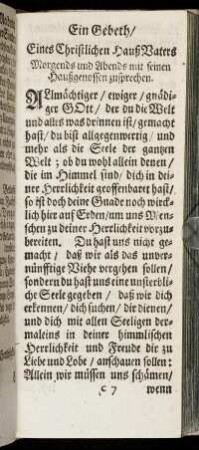 Ein Gebeth/
Eines Christlichen Hauß-Vaters
Morgends und Abends mit seinen
Haußgenossen zusprechen.
ALlmächtiger / ewiger / gnädi-
ger GOtt / der du die Welt
und alles was drinnen ist / gemacht
hast / du bist allgegenwertig / und
mehr als die Seele der gantzen
Welt; ob du wohl allein denen /
die im Himmel sind / dich in dei-
ner Herrlichkeit geoffenbaret hast /
so ist doch deine Gnade noch würck-
lich hier auf Erden / um uns Men-
schen zu deiner Herrlichkeit vorzu-
bereiten. Du hast uns nicht ge-
macht / daß wir als das unver-
nünfftige Viehe vergehen sollen /
sondern du hast uns eine unsterbli-
che Seele gegeben / daß wir dich
erkennen / dich suchen / dir dienen /
und dich mit allen Seeligen der-
maleins in deiner himmlischen
Herrlichkeit und Freude dir zu
Liebe und Lobe / anschauen sollen:
Allein wir müssen uns schämen /
c 7 wenn